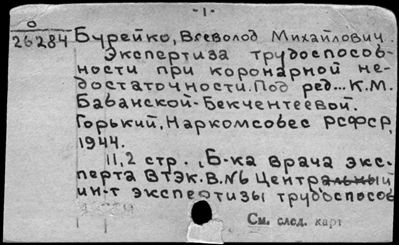 -1-
О
26284 Бурейко, Всеволод Михайлович.
Экспертиза трудоспособ-
ности при коронарной не-
достаточности. Под ред... К.М.
Баванской-Бекчентеевой.
Горький, Наркомсобес РСФСР,
1944.
11,2 стр. (Б-ка врача экс-
перта ВТЭК. В. №6 Центральный
ин-т экспертизы трудоспособ
См. след. карт